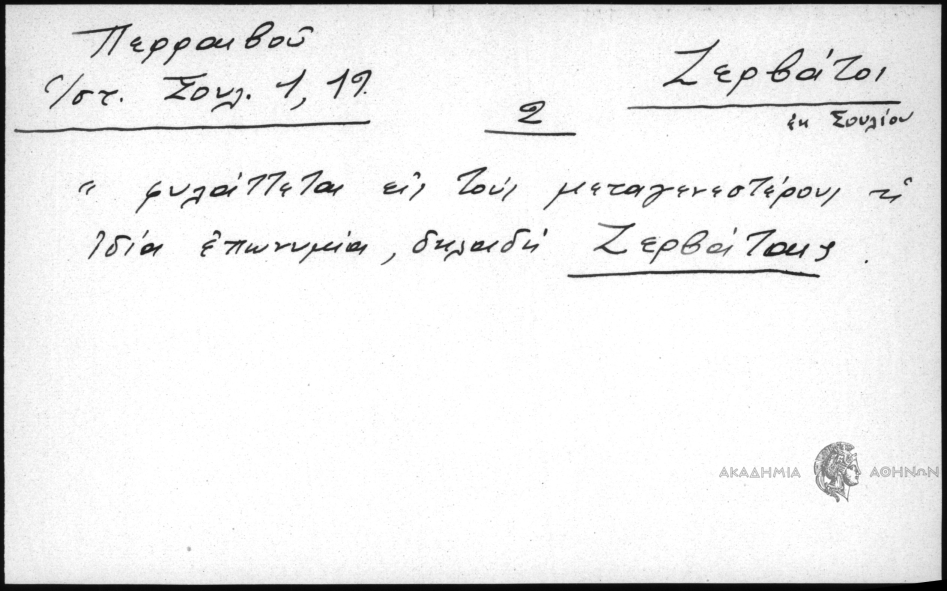 Περραιβοῦ
Ἱστ. Σουλ. 1, 19.
2
Ζερβάτοι
ἐκ Σουλίου
" φυλάττεται εἰς τοὺς μεταγενεστέρους ἡ
ἰδία ἐπωνυμία, δηλαδή Ζερβάταις.
ΑΚΑΔΗΜΙΑ ΑΘΗΝΩΝ